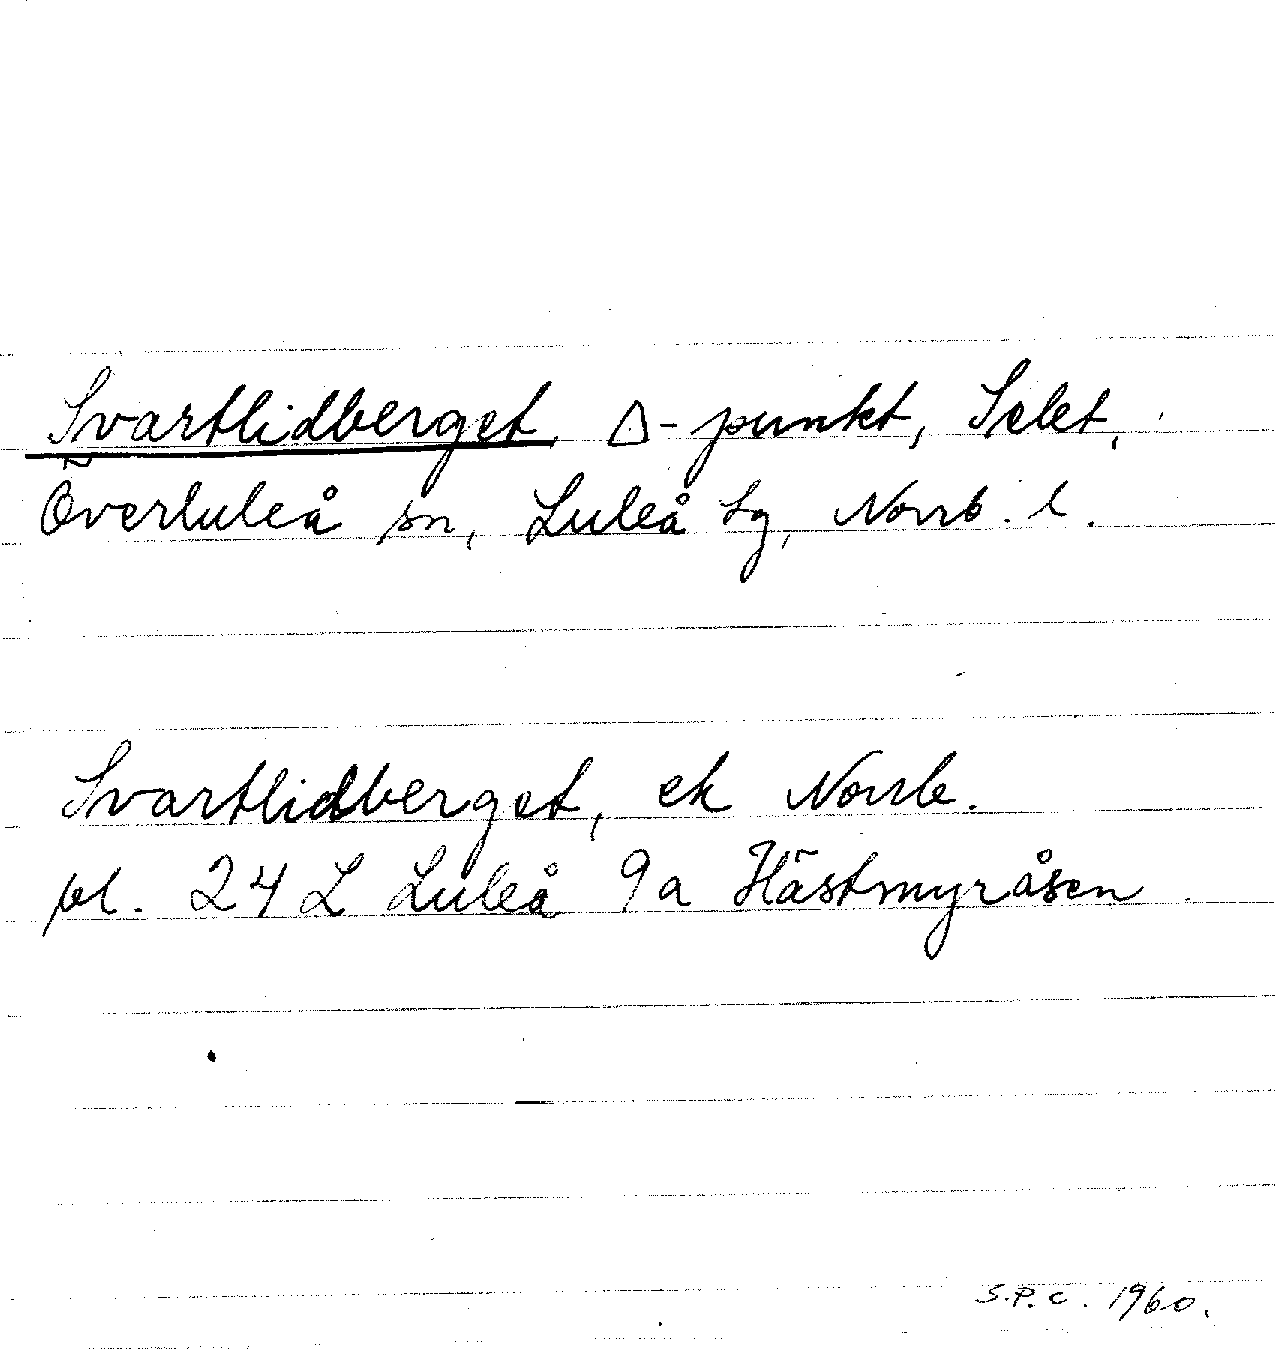 Svartlidberget, △-punkt, Selet,
Överluleå sn, Luleå tg, Norrb. l.
Svartlidberget, ek Norrb.
bl. 24 L Luleå 9a Hästmyråsen
S.P.C. 1960.